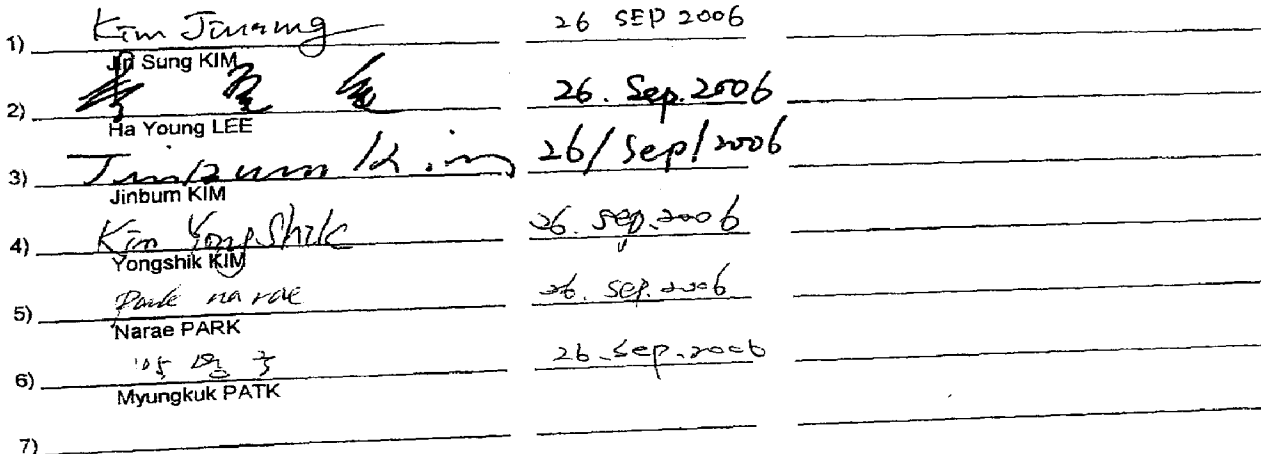 1) Kim Jinsung 26 SEP 2006
Jin Sung KIM
2) 26. Sep. 2006
Ha Young LEE
3) Jinbum Kim 26/Sep/2006
Jinbum KIM
4) Kim YongShik 26. sep. 2006
Yongshik KIM
5) Park na rae 26. sep. 2006
Narae PARK
6) 박명국 26. sep. 2006
Myungkuk PATK
7)